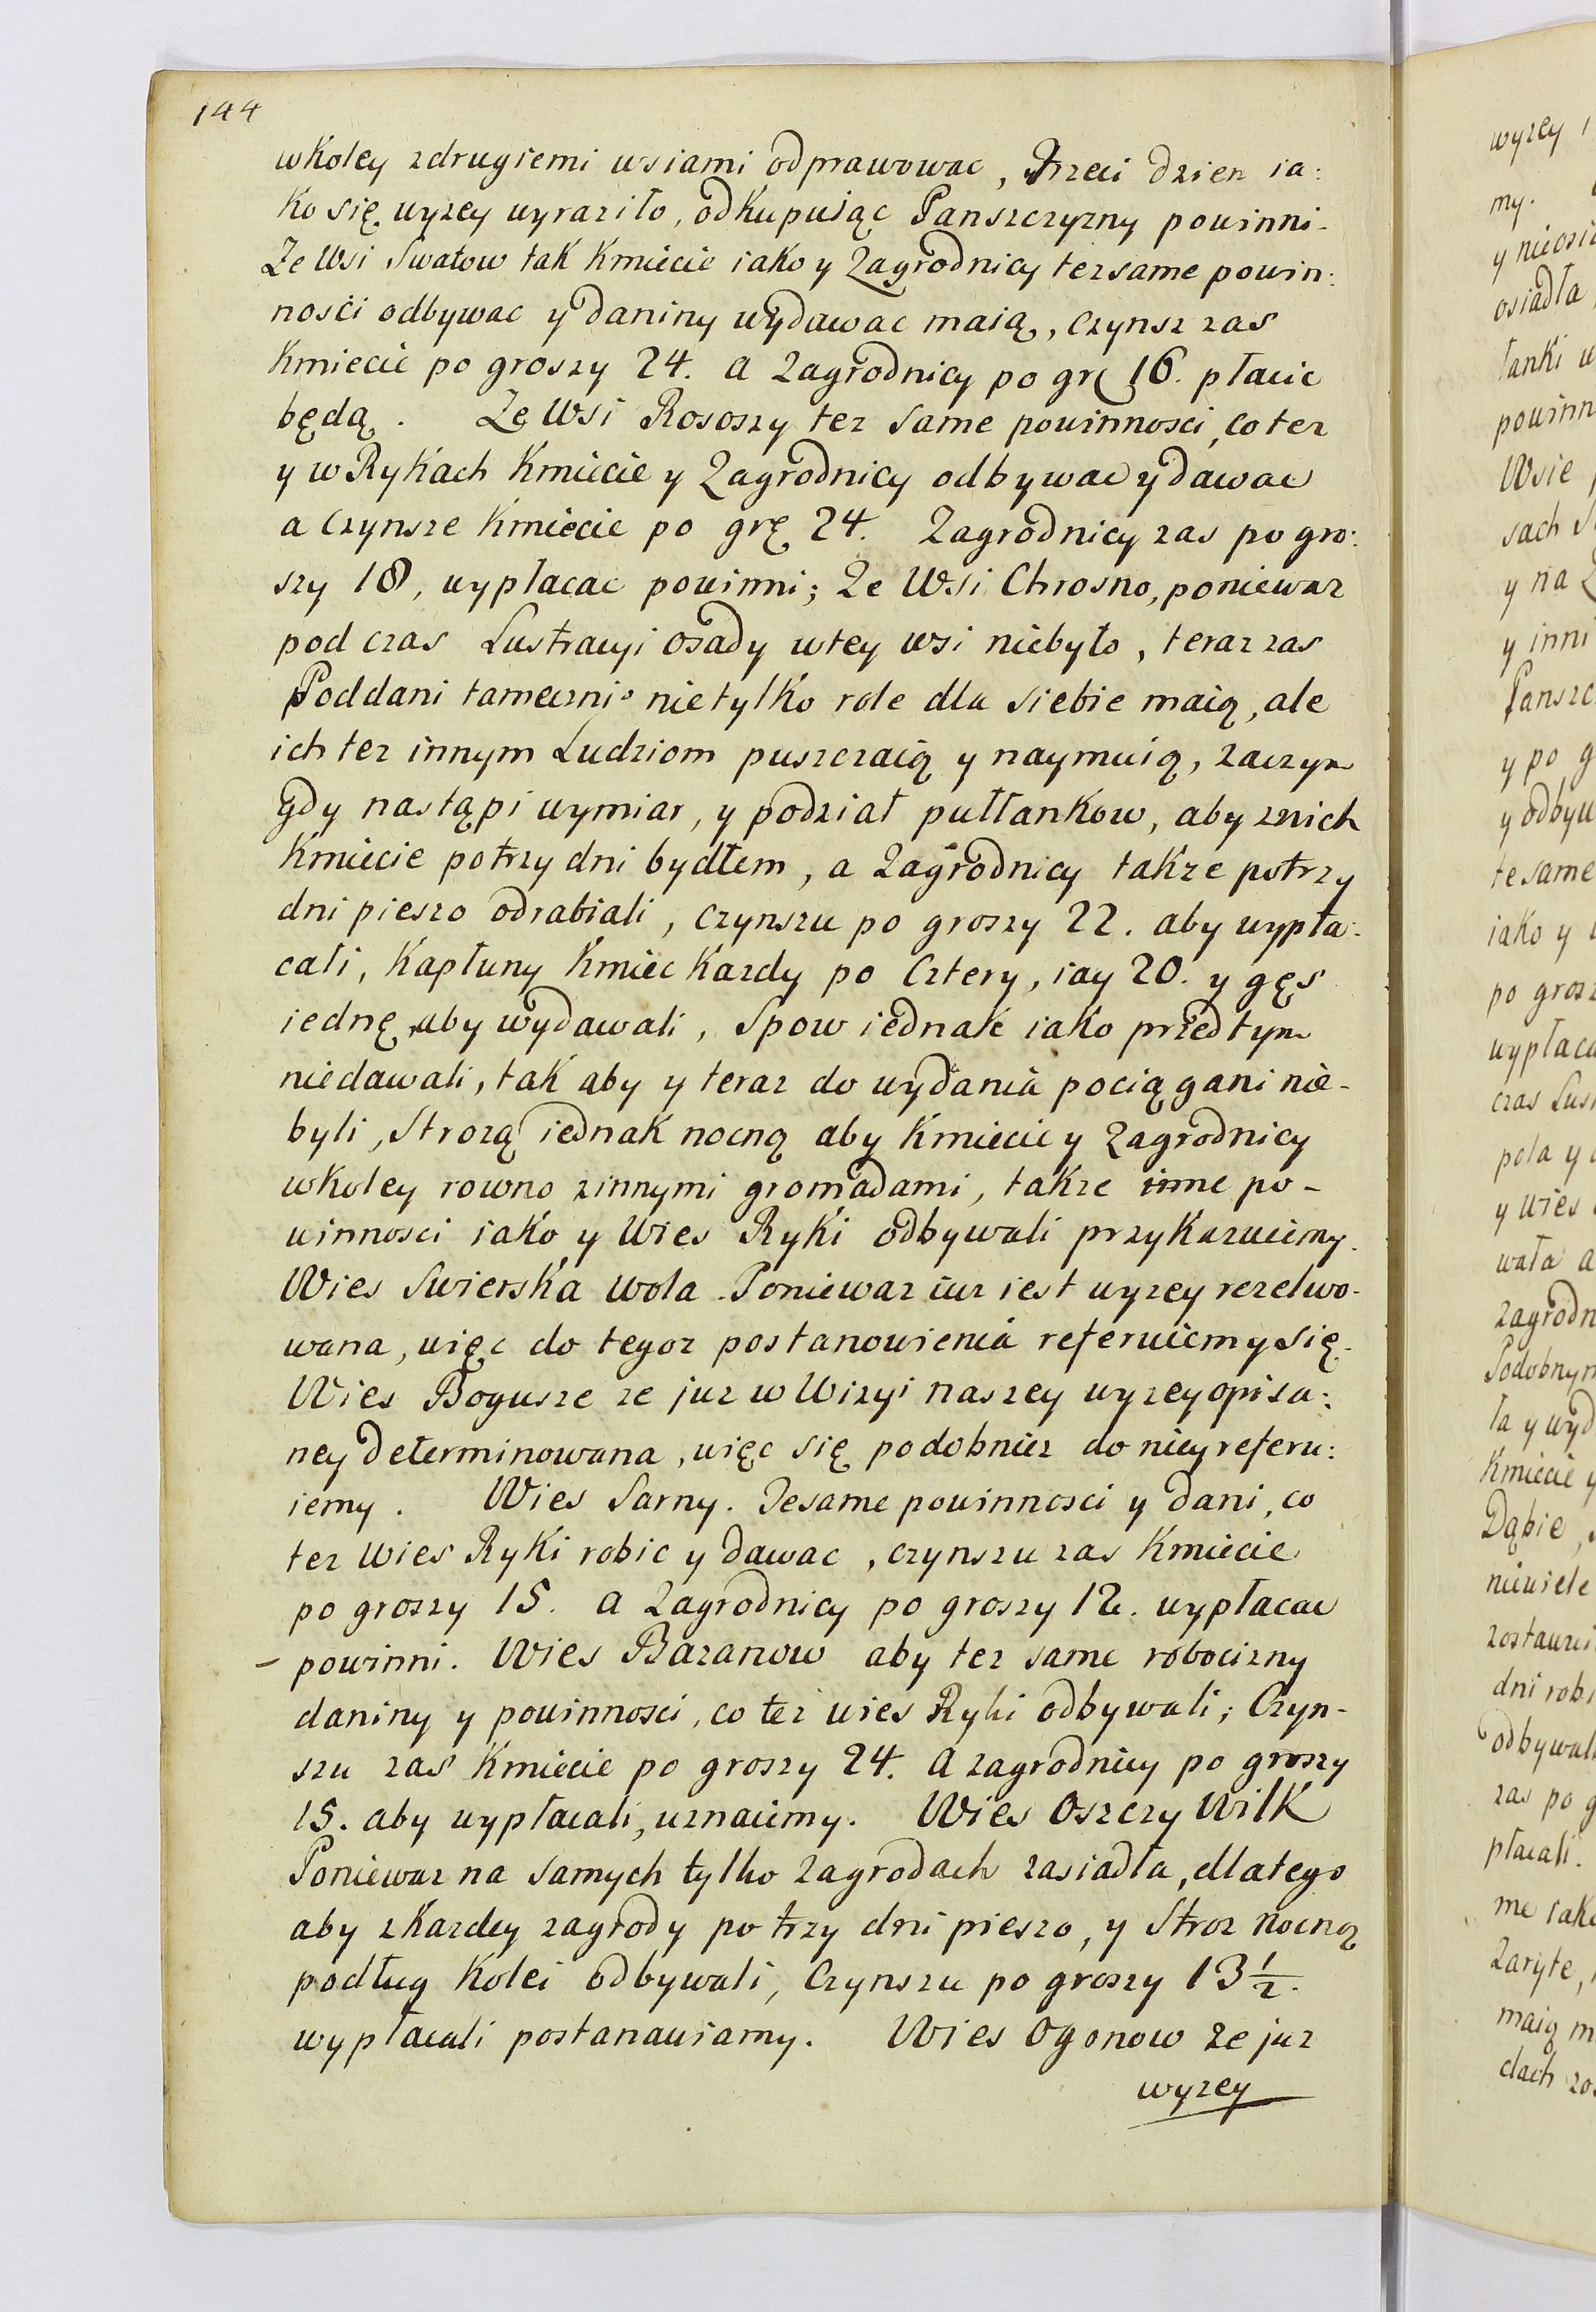 144
wkoley zdrugiemi wsiami odprawowac, Trzeci dzien ia:
ko się wyzey wyraziło, odkupuiąc Panszczyzny powinni.
Ze Wsi Swatow tak Kmiecie iako y Zagrodnicy tezsame powin:
nosci odbywac y daniny wydawac maią, Czynsz zas
Kmiecie po groszy 24. a Zagrodnicy po gr 16. płacic
będą. Ze Wsi Rososzy tez same powinnosci, co tez
y w Rykach Kmiecie y Zagrodnicy odbywac y dawac
a Czynsze Kmiecie po grę 24. Zagrodnicy zas po gro:
szy 18, wypłacac powinni; Ze Wsi Chrosno, poniewaz
pod czas Lustracyi osady wtey wsi niebyło, teraz zas
Poddani tameczni nietylko role dla siebie maią, ale
ich tez innym Ludziom puszczaią y naymuią, zaczym
gdy nastąpi wymiar, y podział pułłankow, aby znich
Kmiecie potrzy dni bydłem, a Zagrodnicy takze potrzy
dni pieszo odrabiali, Czynszu po groszy 22. aby wypła:
cali, Kapłuny Kmiec Kazdy po Cztery, iay 20. y gęs
iednę aby wydawali, Spow iednak iako przedtym
niedawali, tak aby y teraz do wydania pociągani nie-
byli, Strozą iednak nocną aby Kmiecie y Zagrodnicy
wkoley rowno zinnymi gromadami, takze inne po-
winnosci iako y Wies Ryki odbywali przykazuiemy.
Wies Swierska Wola. Poniewaz iuz iest wyzey rezelwo-
wana, więc do tegoz postanowienia referuiemy się.
Wies Bogusze ze juz w Wizyi naszey wyzey opisa:
ney determinowana, więc się podobniez do niey referu:
iemy. Wies Sarny. Tesame powinnosci y dani, co
tez Wies Ryki robic y dawac, czynszu zas Kmiecie
po groszy 15. a Zagrodnicy po groszy 12. wypłacac
- powinni. Wies Bazanow aby tez same robocizny
daniny y powinnosci, co tez wies Ryki odbywali; Czyn-
szu zas Kmiecie po groszy 24. a zagrodnicy po groszy
15. aby wypłacali, uznaiemy. Wies Oszczy Wilk
Poniewaz na samych tylko Zagrodach zasiadła, dlatego
aby zkazdey zagrody po trzy dni pieszo, y Stroz nocną
podług Kolei odbywali, Czynszu po groszy 13 1/2.
wypłacali postanawiamy. Wies Ogonow ze juz
wyzey
wyzey
my.
osiadła
łanki
Wsie
sach
y na
y inni
y po
tesame
iako y
czas
pola y
y Wies
wała a
ła y wyd
Kmiecie y
Dąbie,
niewiele
dni robi
odbywali
zas po g
płacali.
me iako
Zaryte,